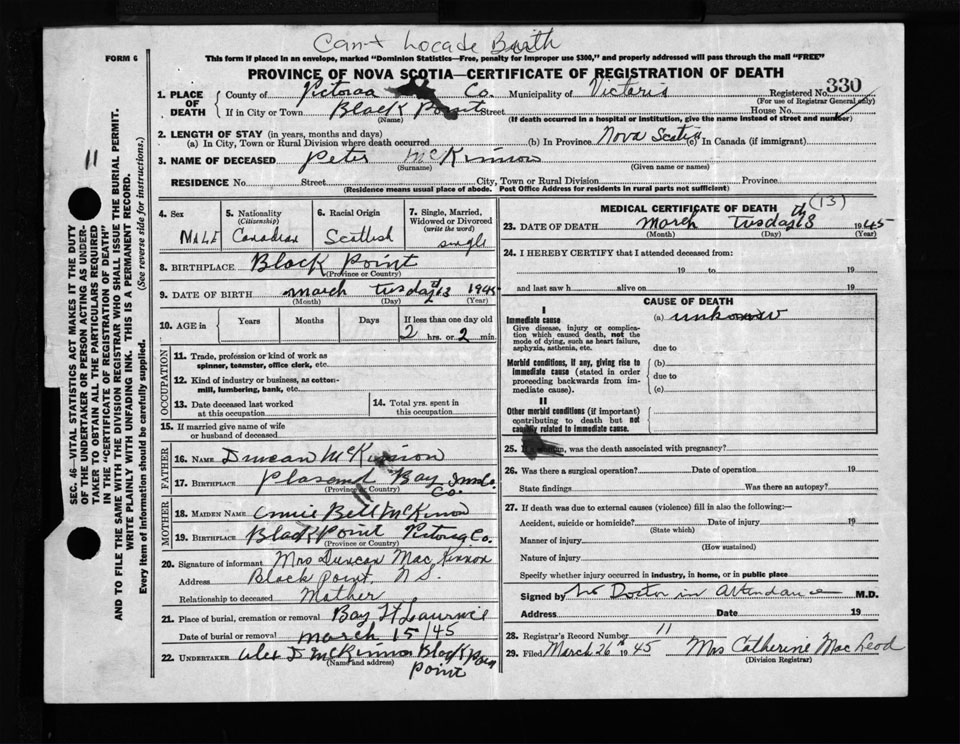 Can't Locade Birth
FORM 6
This form if placed in an envelope, marked "Dominion Statistics—Free, penalty for improper use $300," and properly addressed will pass through the mail "FREE"
PROVINCE OF NOVA SCOTIA—CERTIFICATE OF REGISTRATION OF DEATH
330
1. PLACE OF DEATH
County of Victoria Co. Municipality of Victoria Registered No.
(For use of Registrar General only)
If in City or Town Black Point Street House No.
(Name) (If death occurred in a hospital or institution, give the name instead of street and number)
2. LENGTH OF STAY (in years, months and days)
(a) In City, Town or Rural Division where death occurred (b) In Province Nova Scotia (c) In Canada (if immigrant)
3. NAME OF DECEASED Peter McKinnon
(Surname) (Given name or names)
RESIDENCE No. Street City, Town or Rural Division Province
(Residence means usual place of abode. Post Office Address for residents in rural parts not sufficient)
4. Sex
MALE
5. Nationality
(Citizenship)
Canadian
6. Racial Origin
Scottish
7. Single, Married, Widowed or Divorced
(write the word)
single
8. BIRTHPLACE Black Point
(Province or Country)
9. DATE OF BIRTH march tusday 13th 1945
(Month) (Day) (Year)
10. AGE in Years Months Days If less than one day old
2 hrs. or 2 min.
OCCUPATION
11. Trade, profession or kind of work as spinner, teamster, office clerk, etc.
12. Kind of industry or business, as cotton-mill, lumbering, bank, etc.
13. Date deceased last worked at this occupation
14. Total yrs. spent in this occupation
15. If married give name of wife or husband of deceased
FATHER
16. NAME Duncan McKinnon
17. BIRTHPLACE Plasend Bay Inv. Co.
Co.
(Province or Country)
MOTHER
18. MAIDEN NAME Annie Bell McKinnon
19. BIRTHPLACE Black Point Victoria Co.
(Province or Country)
20. Signature of informant Mrs Duncan MacKinnon
Address Black Point, N S.
Relationship to deceased Mother
21. Place of burial, cremation or removal Bay St Laurnce
Date of burial or removal march 15/45
22. UNDERTAKER Alex J McKinnon Black Point
(Name and address)
Point
MEDICAL CERTIFICATE OF DEATH (13)
23. DATE OF DEATH March tusday 13th 1945
(Month) (Day) (Year)
24. I HEREBY CERTIFY that I attended deceased from:
19 to 19
and last saw h alive on 19
CAUSE OF DEATH
I
Immediate cause
Give disease, injury or complication which caused death, not the mode of dying, such as heart failure, asphyxia, asthenia, etc.
(a) unknown
due to
Morbid conditions, if any, giving rise to immediate cause (stated in order proceeding backwards from immediate cause).
(b)
due to
(c)
II
Other morbid conditions (if important) contributing to death but not causally related to immediate cause.
25. If a woman, was the death associated with pregnancy?
26. Was there a surgical operation? Date of operation 19
State findings Was there an autopsy?
27. If death was due to external causes (violence) fill in also the following:
Accident, suicide or homicide? Date of injury 19
(State which)
Manner of injury
(How sustained)
Nature of injury
Specify whether injury occurred in industry, in home, or in public place
Signed by No Doctor in Attendance M.D.
Address Date 19
28. Registrar's Record Number 11
29. Filed March 26th 1945 Mrs Catherine MacLeod
(Division Registrar)
11
SEC. 46—VITAL STATISTICS ACT MAKES IT THE DUTY OF THE UNDERTAKER OR PERSON ACTING AS UNDERTAKER TO OBTAIN ALL THE PARTICULARS REQUIRED IN THE "CERTIFICATE OF REGISTRATION OF DEATH" AND TO FILE THE SAME WITH THE DIVISION REGISTRAR WHO SHALL ISSUE THE BURIAL PERMIT.
WRITE PLAINLY WITH UNFADING INK. THIS IS A PERMANENT RECORD.
Every item of information should be carefully supplied. (See reverse side for instructions.)